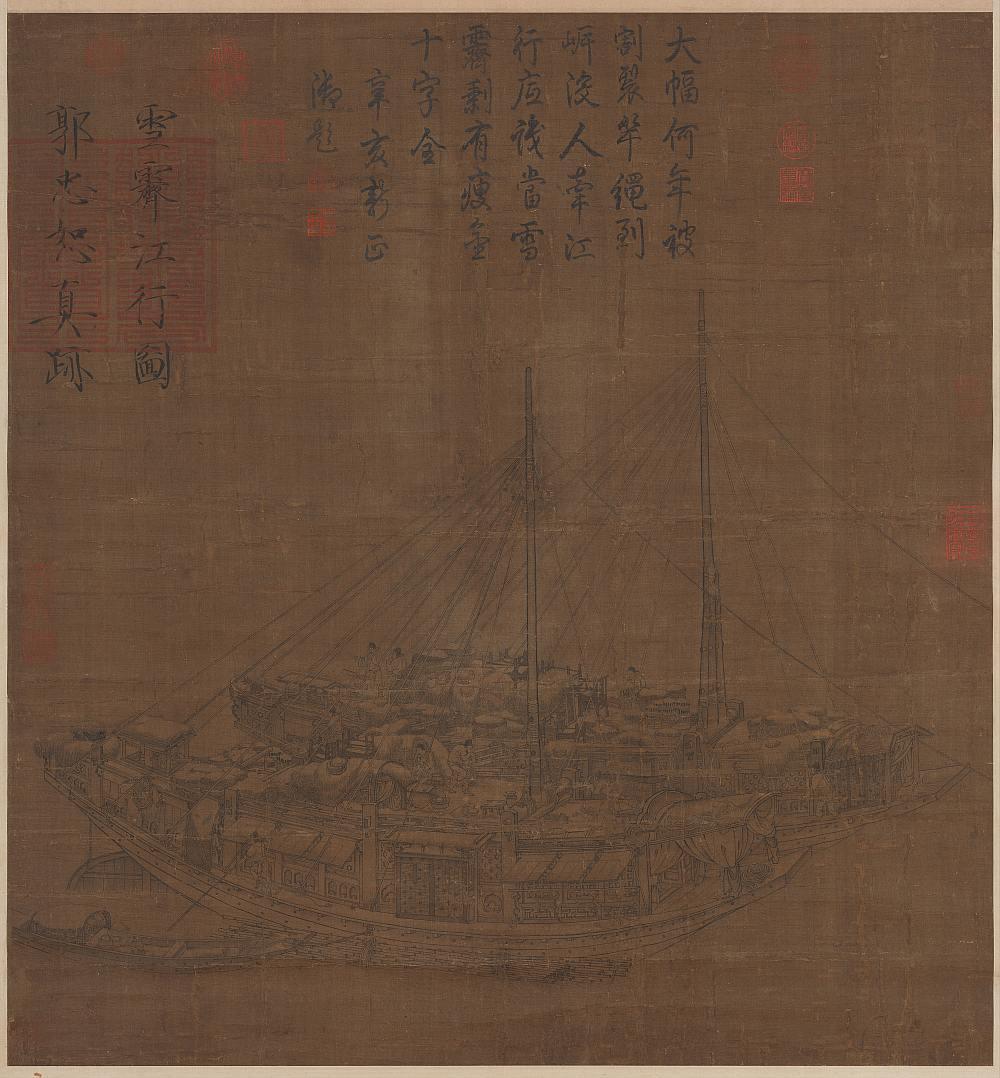 大幅何年被
割裂牽繩到
岼沒人牽江
行應識當雪
霽剩有瘦金
十字全
辛亥新正
御題
雪霽江行圖
郭忠恕真跡